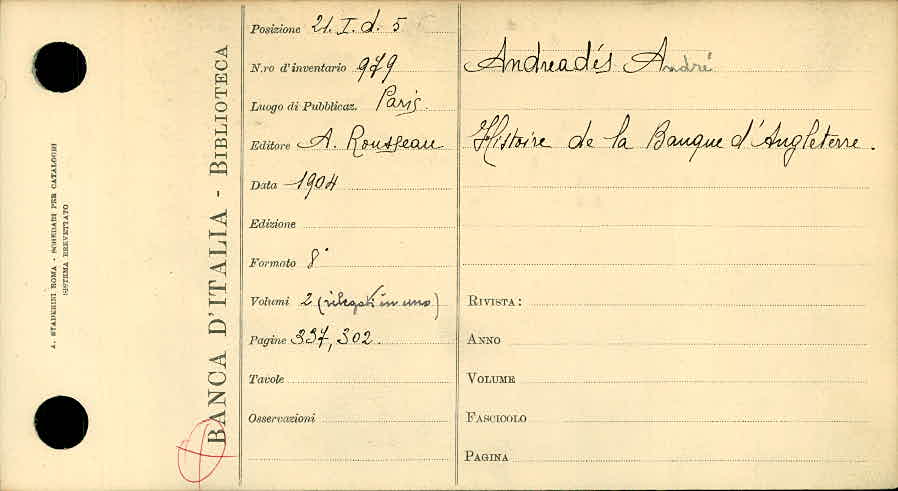 A. STADERINI ROMA - SCHEDARI PER CATALOGHI
SISTEMA BREVETTATO
BANCA D'ITALIA - BIBLIOTECA
Posizione 21. I. d. 5
N.ro d'inventario 979
Luogo di Pubblicaz. Paris.
Editore A. Rousseau
Data 1904
Edizione
Formato 8°
Volumi 2 (rilegati in uno)
Pagine 337, 302.
Tavole
Osservazioni
Andreadés André
Histoire de la Banque d'Angleterre.
RIVISTA:
ANNO
VOLUME
FASCICOLO
PAGINA